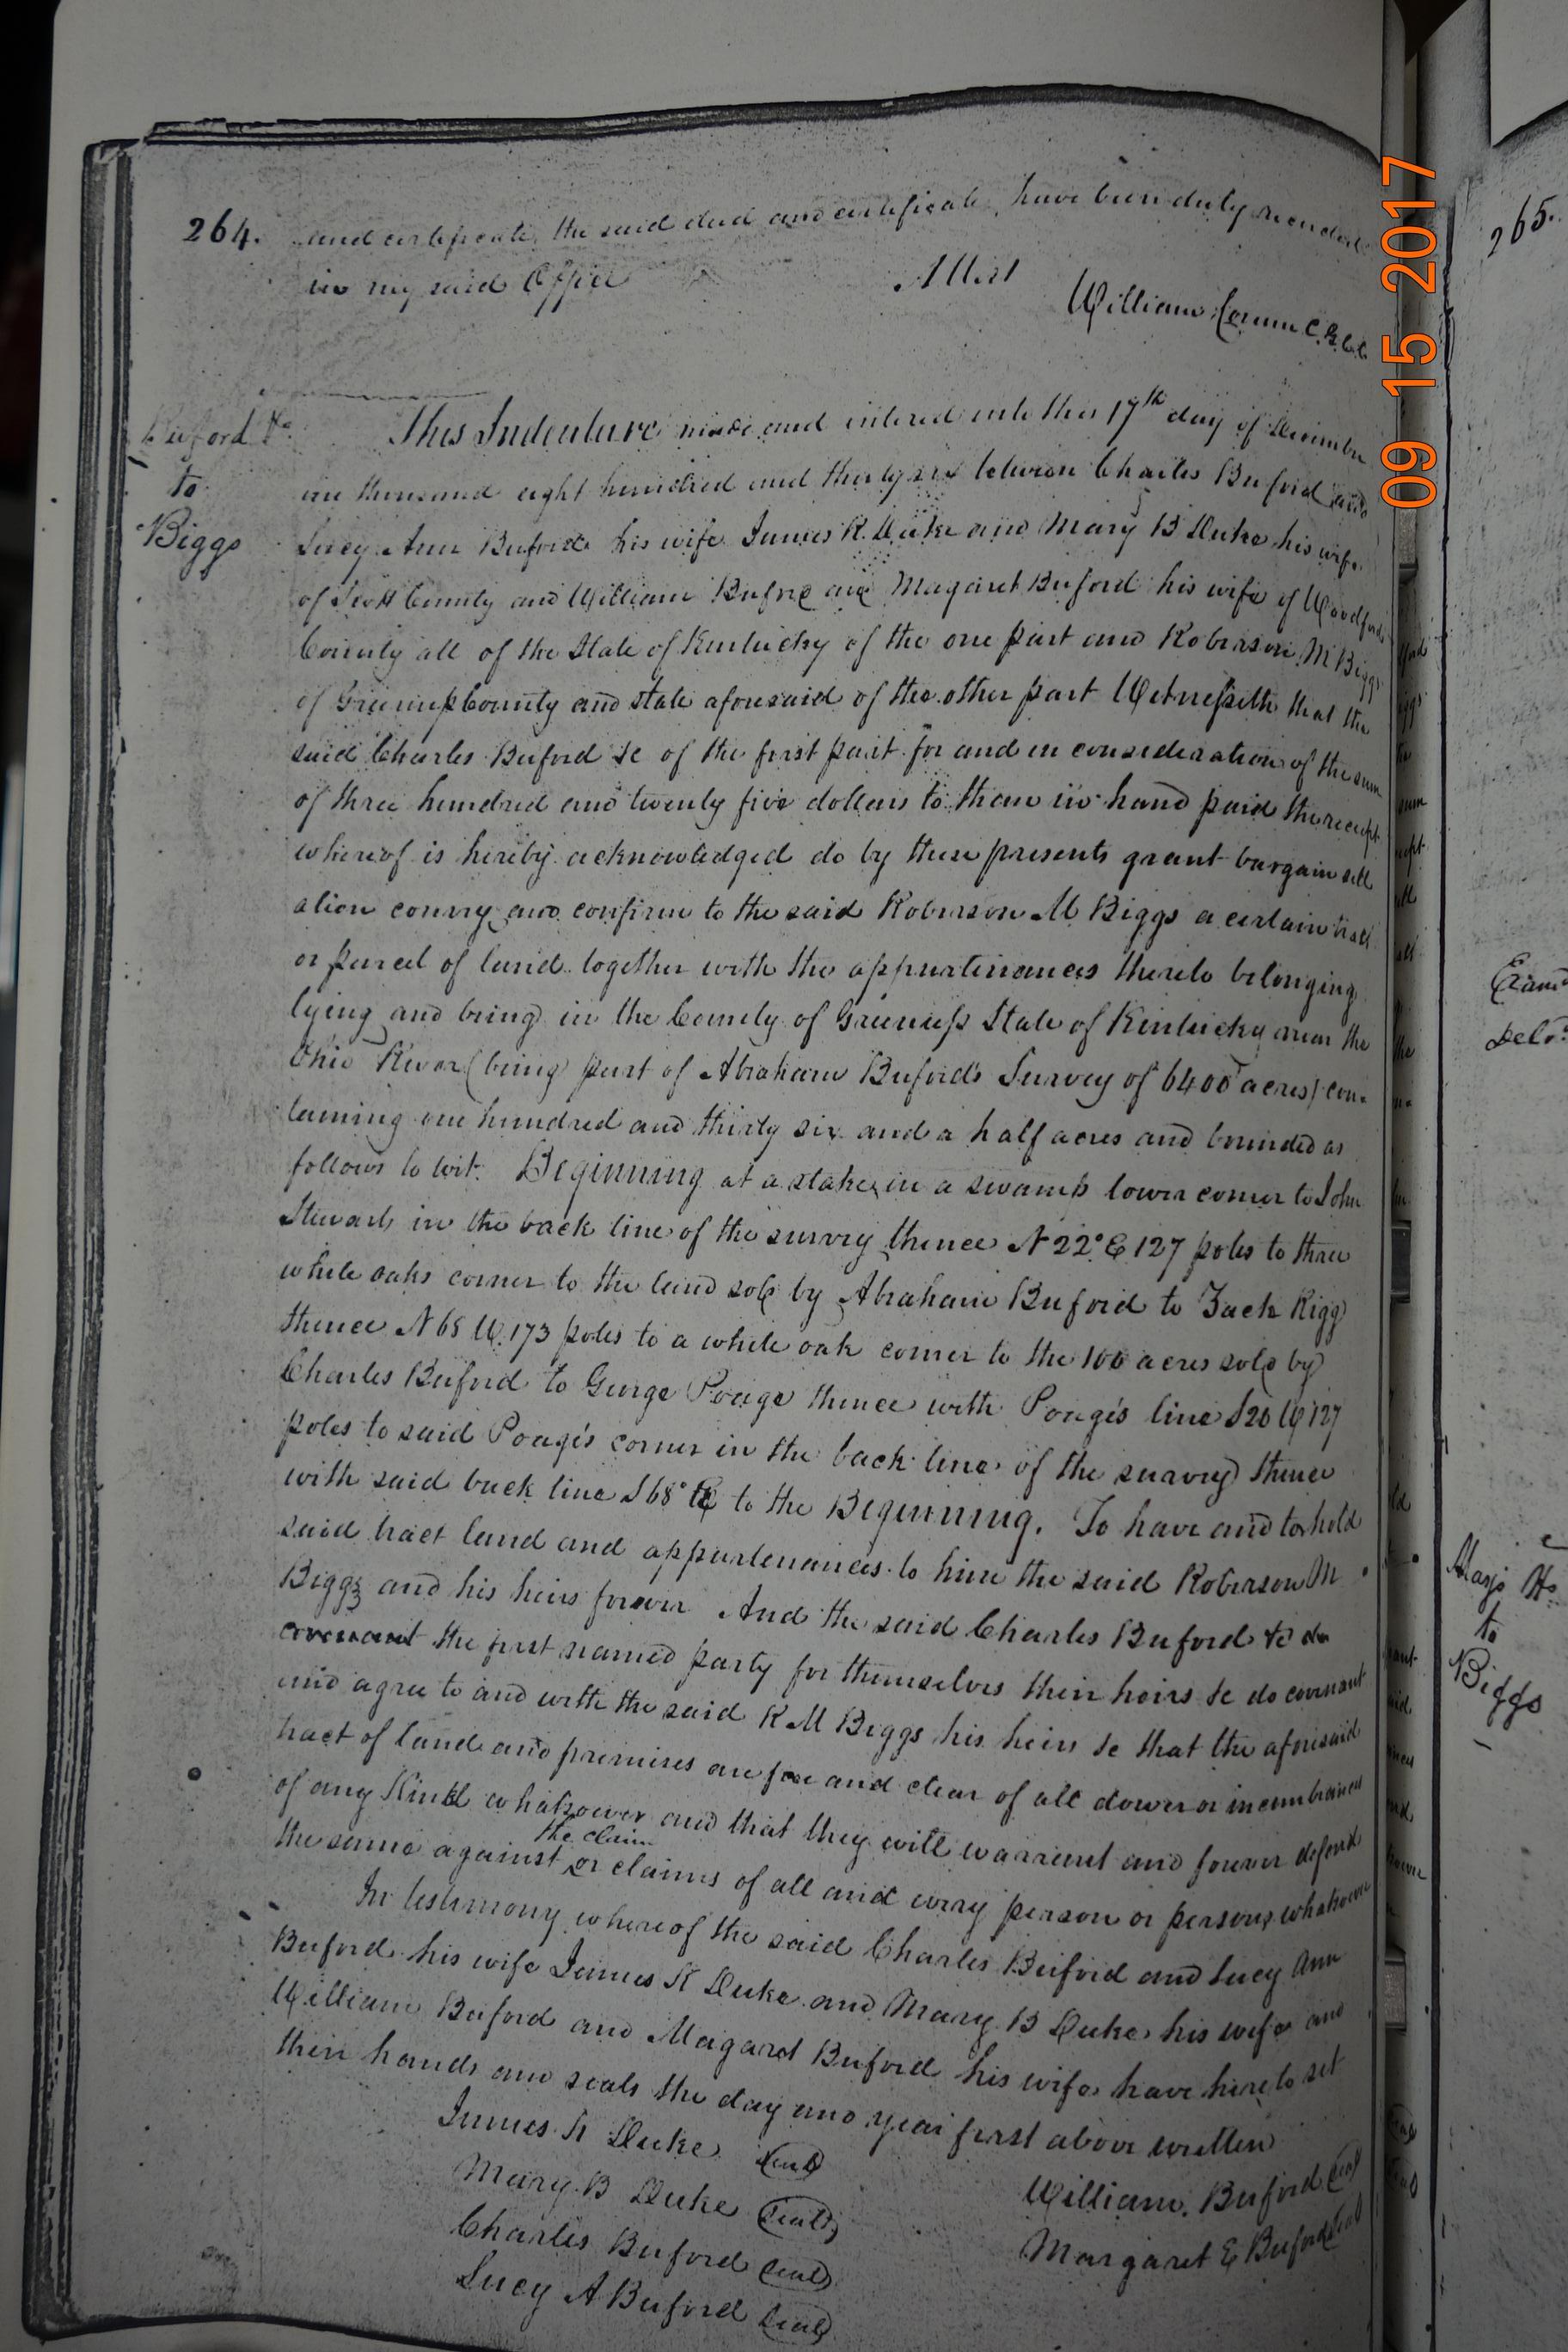 264. and certificate, the said deed and certificate, have been duly recorded
in my said Office Attest
William Corum C.G.C.C.
Buford &c
to
Biggs
This Indenture made and entered into this 17th day of December
one thousand eight hundred and thirty six between Charles Buford and
Lucy Ann Buford his wife James K. Duke and Mary B Duke his wife
of Scott County and William Buford and Magaret Buford his wife of Woodford
County all of the State of Kentucky of the one part and Roberson M Biggs
of Greenup County and state aforesaid of the other part Witnesseth that the
said Charles Buford &c of the first part for and in consideration of the sum
of three hundred and twenty five dollars to them in hand paid the receipt
whereof is hereby acknowledged do by these presents grant bargain sell
alien convey and confirm to the said Roberson M Biggs a certain tract
or parcel of land together with the appurtinances thereto belonging
lying and being in the County of Greenup State of Kentucky near the
Ohio River (being part of Abraham Buford's Survey of 6400 acres) con-
taining one hundred and thirty six and a half acres and bounded as
follows to wit. Beginning at a stake in a swamp lower corner to John
Stewarts in the back line of the survey thence N 22° E 127 poles to three
white oaks corner to the land sold by Abraham Buford to Zack Rigg
thence N 68 W. 173 poles to a white oak corner to the 100 acres sold by
Charles Buford to George Poage thence with Poage's line S 20 W 127
poles to said Poage's corner in the back line of the survey thence
with said back line S 68° E to the Beginning. To have and to hold
said tract land and appurtenances to him the said Roberson M
Biggs and his heirs forever And the said Charles Buford &c do
covenant the first named party for themselves their heirs &c do covenant
and agree to and with the said R M Biggs his heirs &c that the aforesaid
tract of land and premises are free and clear of all dower or incumbrances
of any Kind whatsoever and that they will warrant and forever defend
the claim
the same against or claims of all and every person or persons whatsoever
In testimony whereof the said Charles Buford and Lucy Ann
Buford his wife James K Duke and Mary B Duke his wife and
William Buford and Magaret Buford his wife have hereto set
their hands and seals the day and year first above written
James K Duke (seal)
Mary B Duke (seal)
Charles Buford (seal)
Lucy A Buford (seal)
William Buford (seal)
Margaret E Buford (seal)
09 15 2017
265.
Exam
Marys Hs
to
Biggs